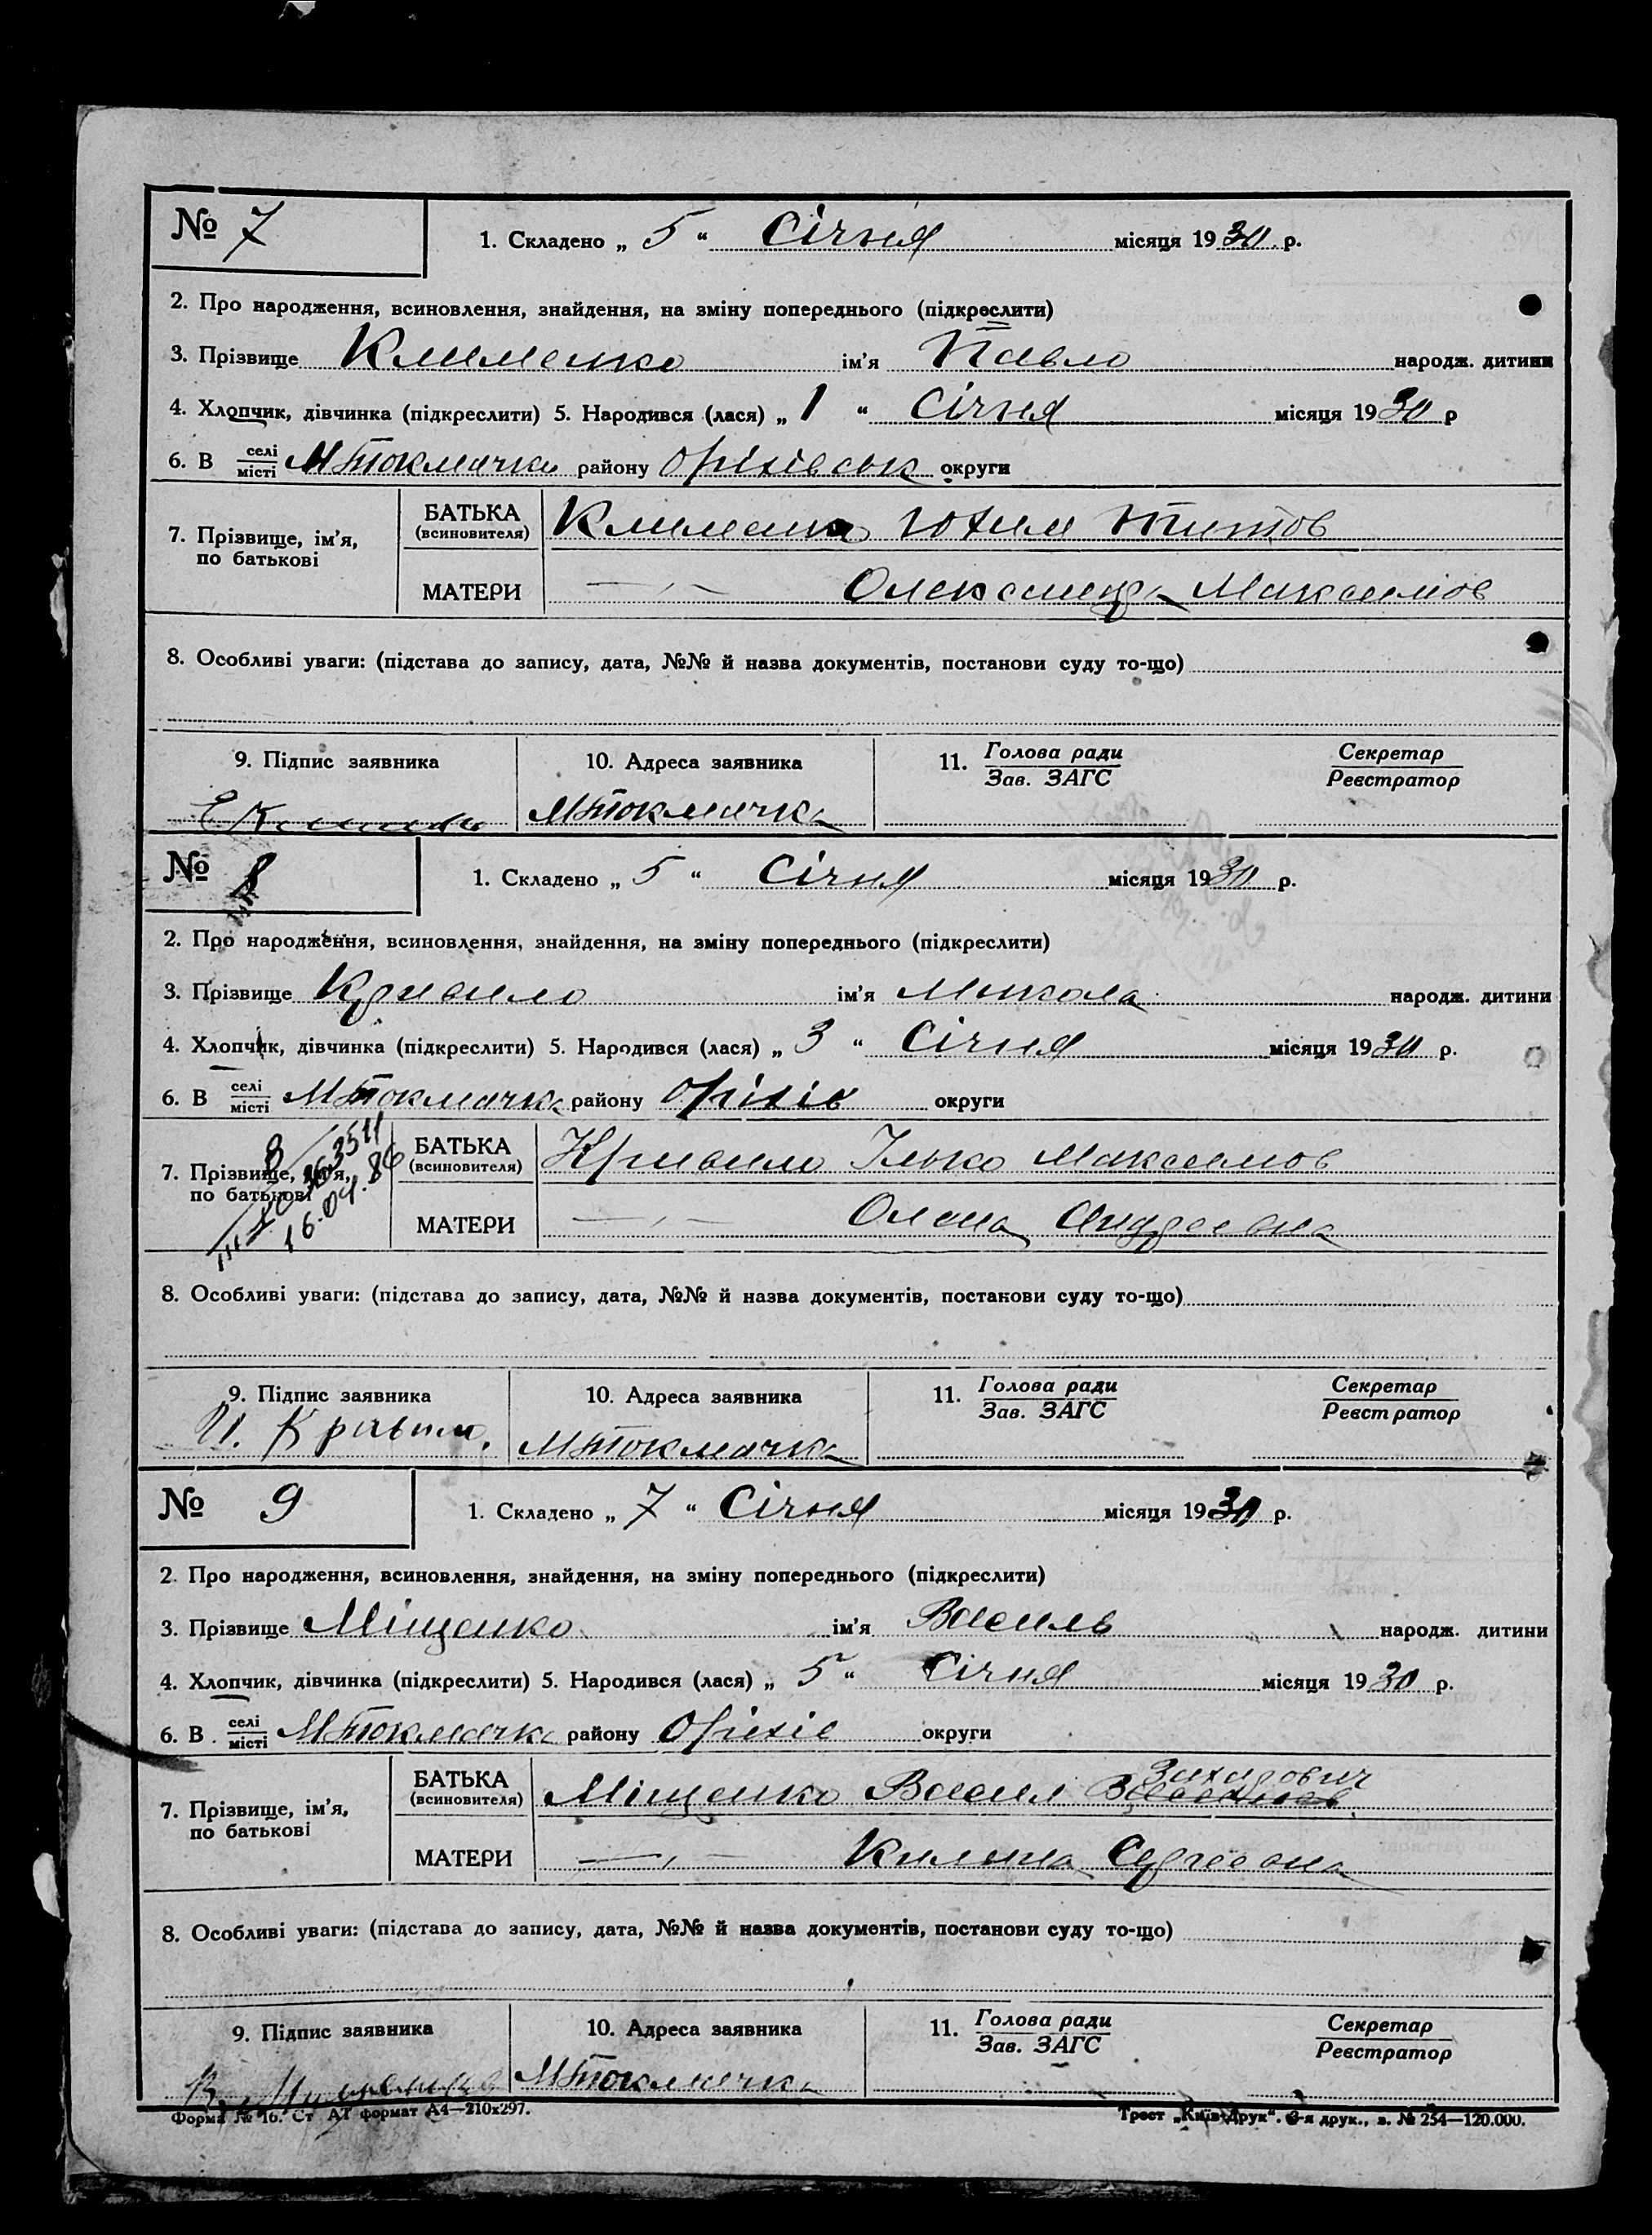 № 7
1. Складено „ 5 “ Січня місяця 1930 р.
2. Про народження, всиновлення, знайдення, на зміну попереднього (підкреслити)
3. Прізвище Клименко ім'я Павло народж. дитини
4. Хлопчик, дівчинка (підкреслити) 5. Народився (лася) „ 1 “ Січня місяця 1930 р
6. В селі місті МТокмачка району Оріхівськ округи
7. Прізвище, ім'я, по батькові
БАТЬКА (всиновителя) Клименко Юхим Титов
МАТЕРИ —„— Олександра Максимов
8. Особливі уваги: (підстава до запису, дата, №№ й назва документів, постанови суду то-що)
9. Підпис заявника
10. Адреса заявника
11. Голова ради Зав. ЗАГС
Секретар Реєстратор
МТокмачка
№ 8
1. Складено „ 5 “ Січня місяця 1930 р.
2. Про народження, всиновлення, знайдення, на зміну попереднього (підкреслити)
3. Прізвище Кривило ім'я Микола народж. дитини
4. Хлопчик, дівчинка (підкреслити) 5. Народився (лася) „ 3 “ Січня місяця 1930 р.
6. В селі місті МТокмачка району Оріхів округи
7. Прізвище, ім'я, по батькові
16.04.86
БАТЬКА (всиновителя) Кривило Ілько Максимов
МАТЕРИ —„— Олена Андреевна
8. Особливі уваги: (підстава до запису, дата, №№ й назва документів, постанови суду то-що)
9. Підпис заявника
10. Адреса заявника
11. Голова ради Зав. ЗАГС
Секретар Реєстратор
И. Кривило. МТокмачка
№ 9
1. Складено „ 7 “ Січня місяця 1930 р.
2. Про народження, всиновлення, знайдення, на зміну попереднього (підкреслити)
3. Прізвище Міщенко ім'я Василь народж. дитини
4. Хлопчик, дівчинка (підкреслити) 5. Народився (лася) „ 5 “ Січня місяця 1930 р.
6. В селі місті МТокмачка району Оріхів округи
7. Прізвище, ім'я, по батькові
БАТЬКА (всиновителя) Міщенко Васил Захарович
МАТЕРИ —„— Килина Сергеевна
8. Особливі уваги: (підстава до запису, дата, №№ й назва документів, постанови суду то-що)
9. Підпис заявника
10. Адреса заявника
11. Голова ради Зав. ЗАГС
Секретар Реєстратор
МТокмачка
Форма № 16. Ст АТ формат А4—210х297.
Трест „Київ-Друк“. 3-я друк., з. № 254—120.000.